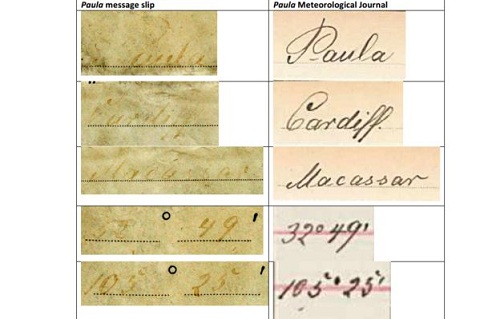 Paula message slip
Paula Meteorological Journal
Paula
Cardiff
Macassar
49'
32° 49'
105° 25'
105° 25'